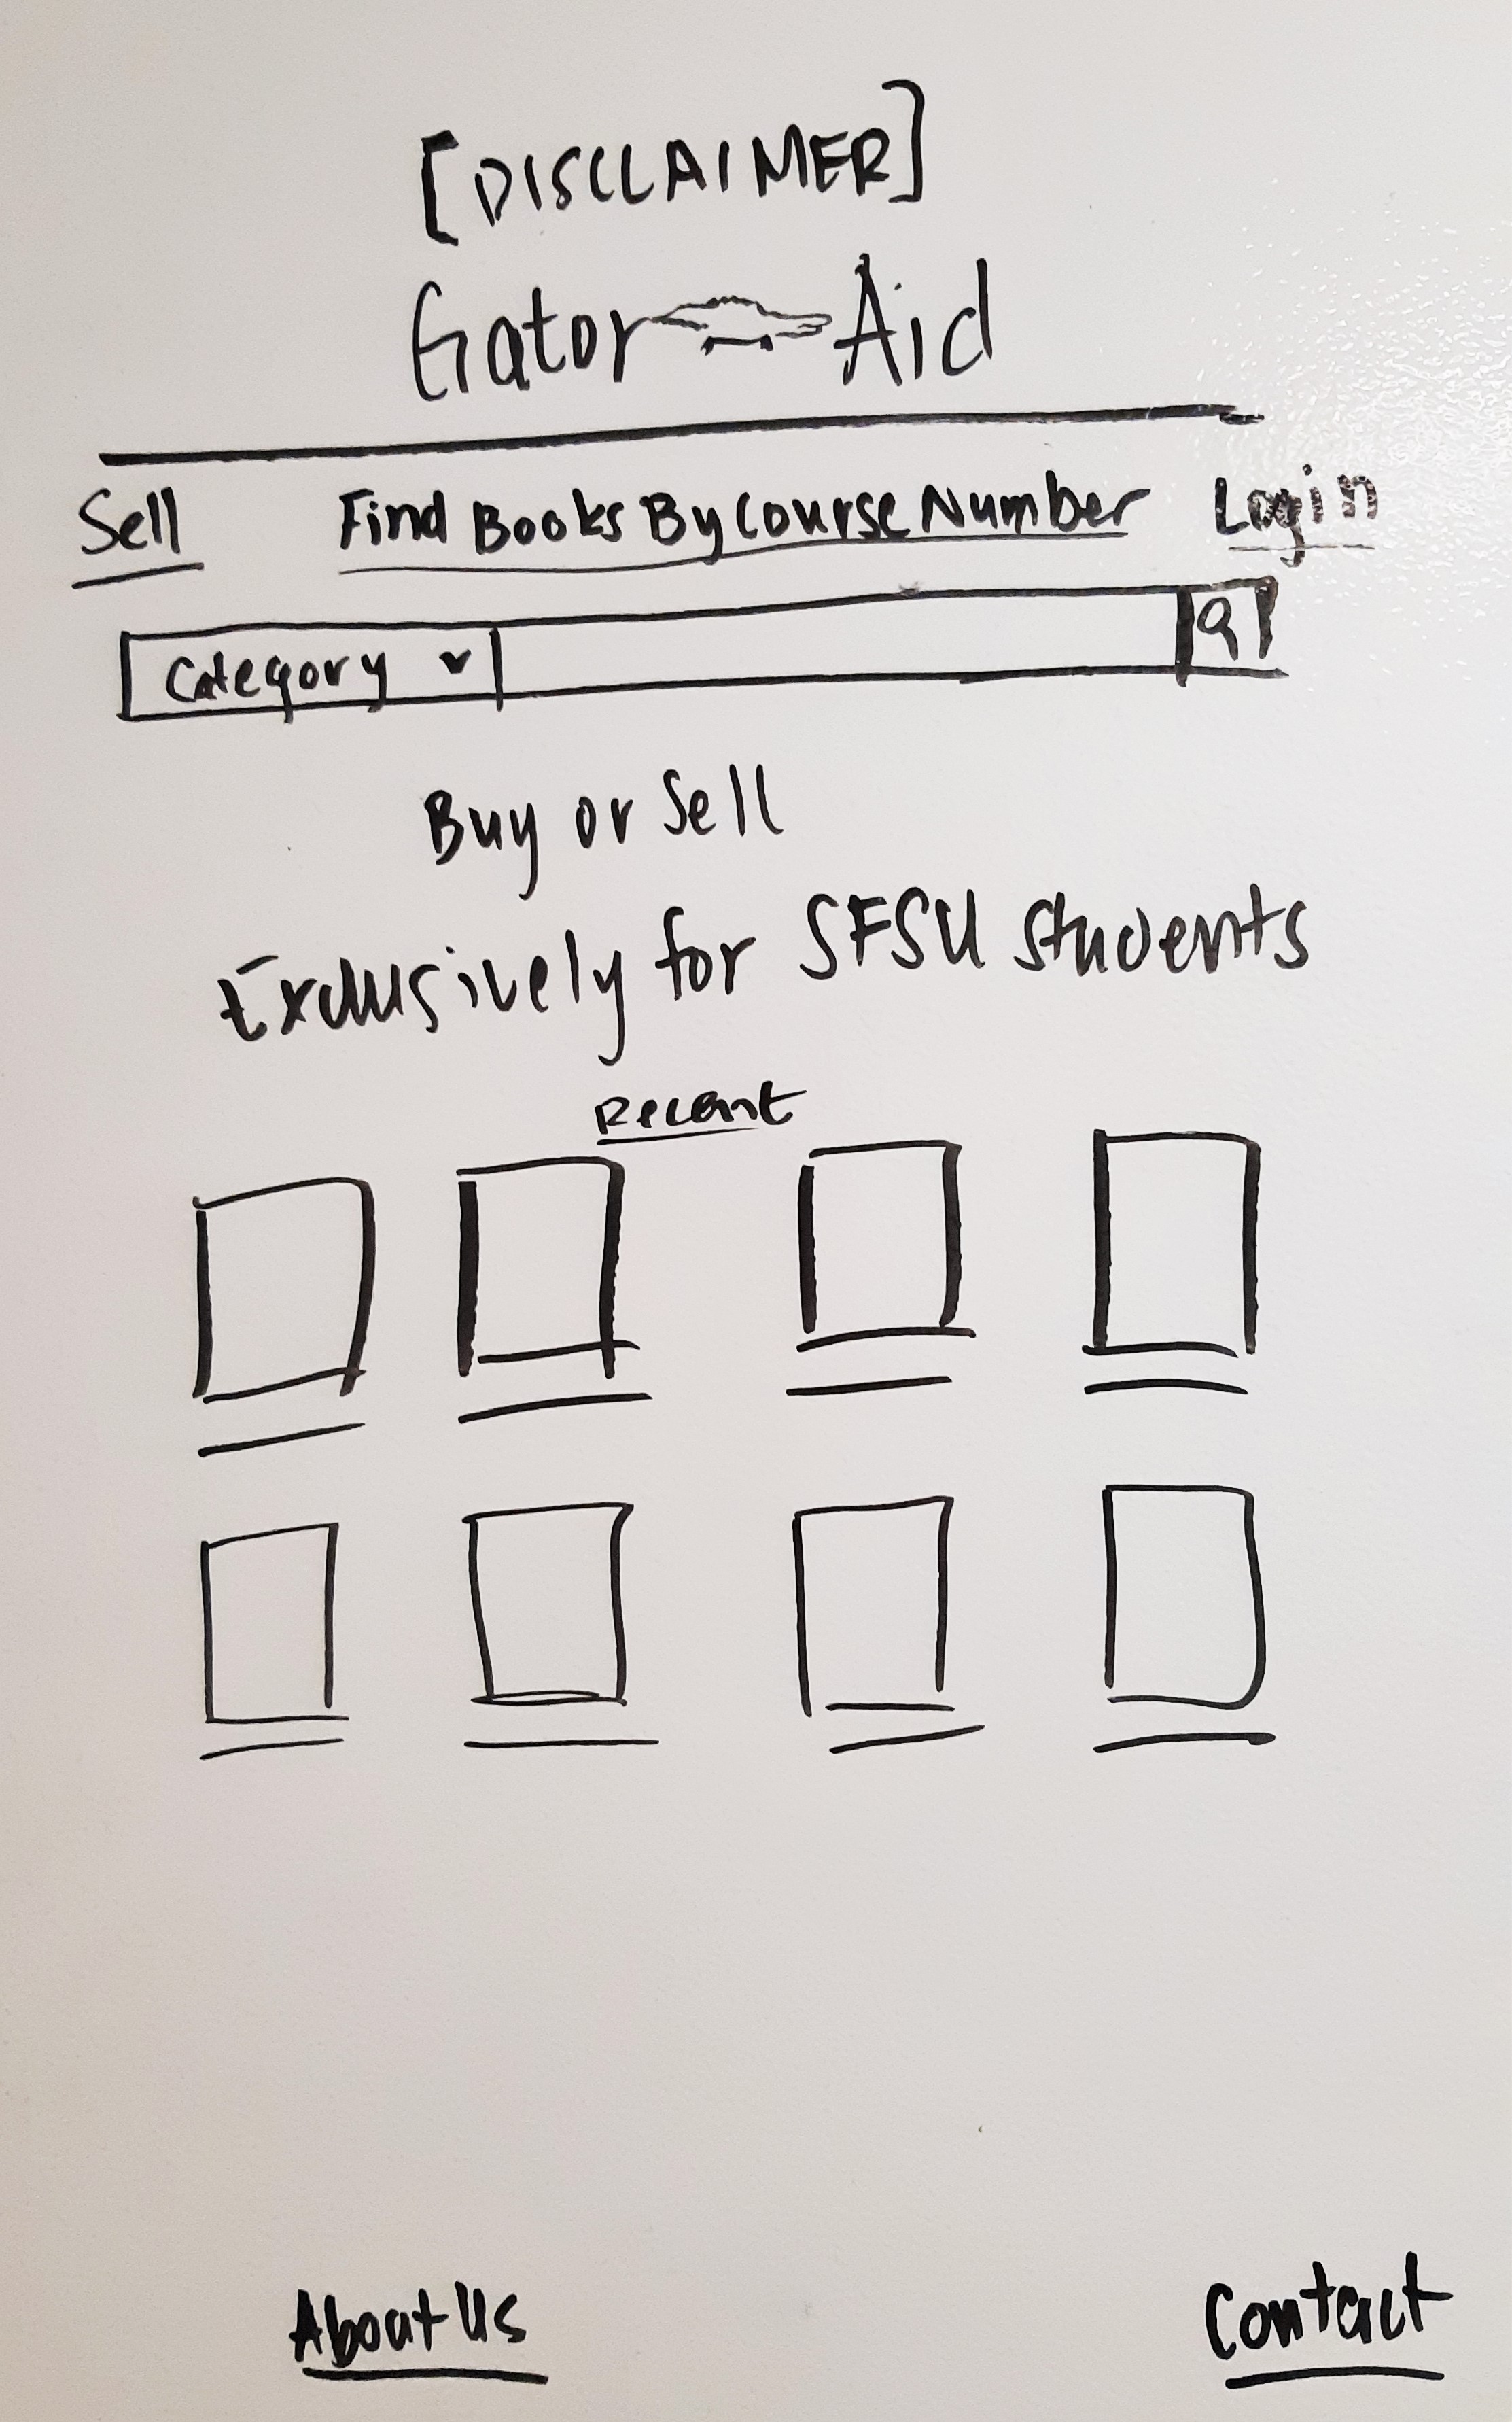 [DISCLAIMER]
Gator Aid
Sell Find Books By Course Number Login
Category
Buy or Sell
Exclusively for SFSU students
Recent
About Us Contact